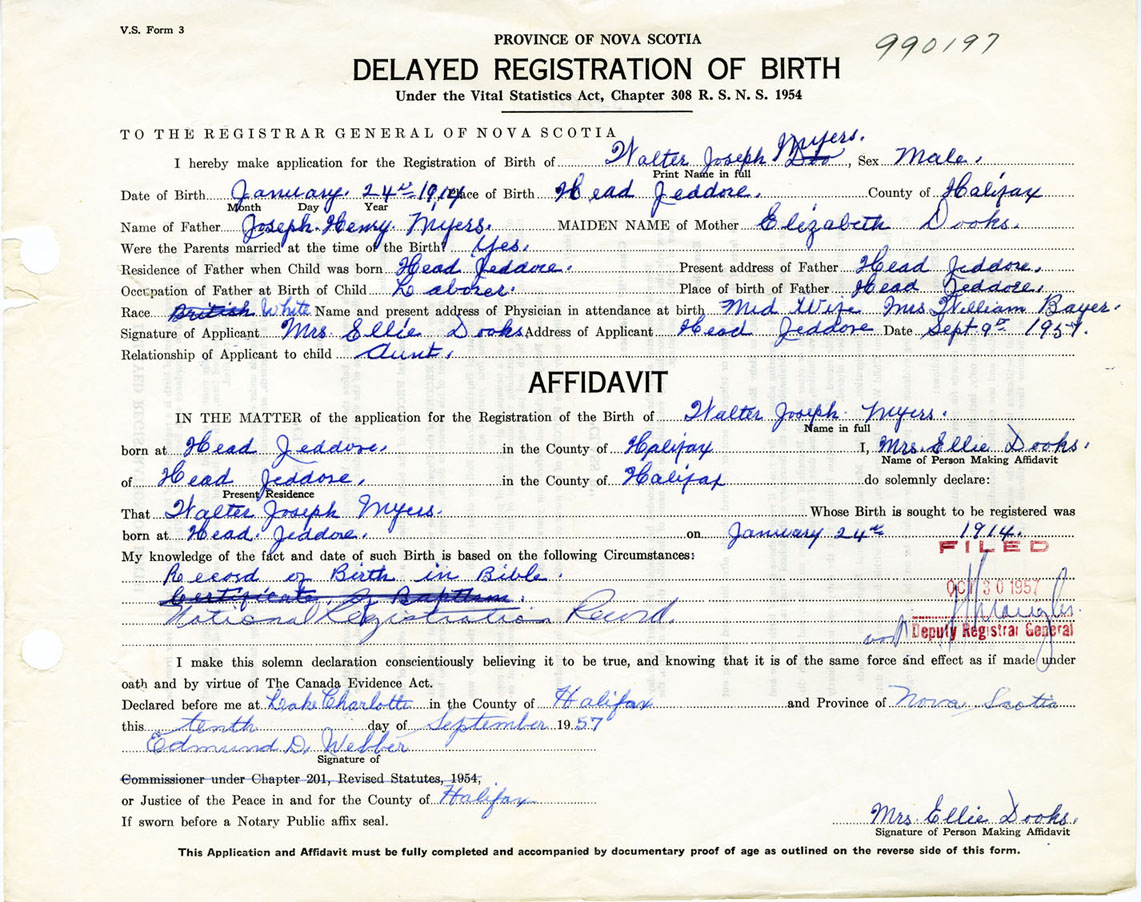 V.S. Form 3
PROVINCE OF NOVA SCOTIA
990197
DELAYED REGISTRATION OF BIRTH
Under the Vital Statistics Act, Chapter 308 R. S. N. S. 1954
TO THE REGISTRAR GENERAL OF NOVA SCOTIA
I hereby make application for the Registration of Birth of Walter Joseph Myers. Doo, Sex Male.
Print Name in full
Date of Birth January. 24th 1914 Place of Birth Head Jeddore. County of Halifax
Month Day Year
Name of Father Joseph Henry Myers. MAIDEN NAME of Mother Elizabeth Dooks.
Were the Parents married at the time of the Birth? Yes.
Residence of Father when Child was born Head Jeddore. Present address of Father Head Jeddore.
Occupation of Father at Birth of Child Laborer. Place of birth of Father Head Jeddore.
Race British White Name and present address of Physician in attendance at birth Mid Wife Mrs William Bayer.
Signature of Applicant Mrs. Ellie Dooks Address of Applicant Head Jeddore Date Sept 9th 1957.
Relationship of Applicant to child Aunt.
AFFIDAVIT
IN THE MATTER of the application for the Registration of the Birth of Walter Joseph Myers.
Name in full
born at Head Jeddore. in the County of Halifax I, Mrs. Ellie Dooks.
Name of Person Making Affidavit
of Head Jeddore. in the County of Halifax do solemnly declare:
Present Residence
That Walter Joseph Myers. Whose Birth is sought to be registered was
born at Head Jeddore. on January 24th 1914.
My knowledge of the fact and date of such Birth is based on the following Circumstances:
FILED
Record of Birth in Bible.
OCT 30 1957
Certificate Of Baptism.
National Registration Record.
Deputy Registrar General
I make this solemn declaration conscientiously believing it to be true, and knowing that it is of the same force and effect as if made under
oath and by virtue of The Canada Evidence Act.
Declared before me at Lake Charlotte in the County of Halifax and Province of Nova Scotia
this tenth day of September 1957
Edmund D. Webber
Signature of
Commissioner under Chapter 201, Revised Statutes, 1954,
or Justice of the Peace in and for the County of Halifax
If sworn before a Notary Public affix seal.
Mrs. Ellie Dooks.
Signature of Person Making Affidavit
This Application and Affidavit must be fully completed and accompanied by documentary proof of age as outlined on the reverse side of this form.